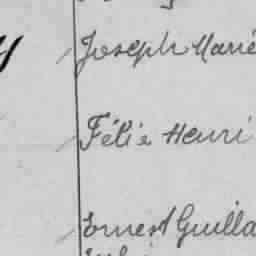 Joseph Marie
Félix Henri
Ernest Guilla